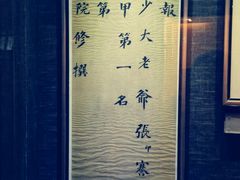 報
少大老爺張印謇
甲第一名
第
院修撰